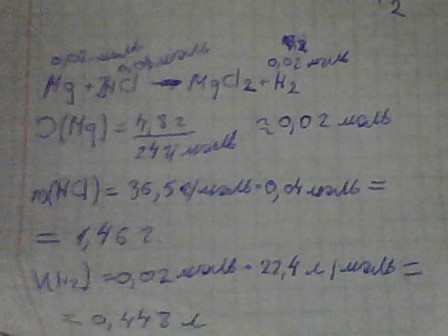 2
0,02 моль 0,04 моль 0,02 моль
Mg + 2HCl → MgCl2 + H2
ν(Mg) = 4,8 г / 24 г/моль ≈ 0,02 моль
m(HCl) = 36,5 г/моль · 0,04 моль =
= 1,46 г.
V(H2) = 0,02 моль · 22,4 л/моль =
= 0,448 л